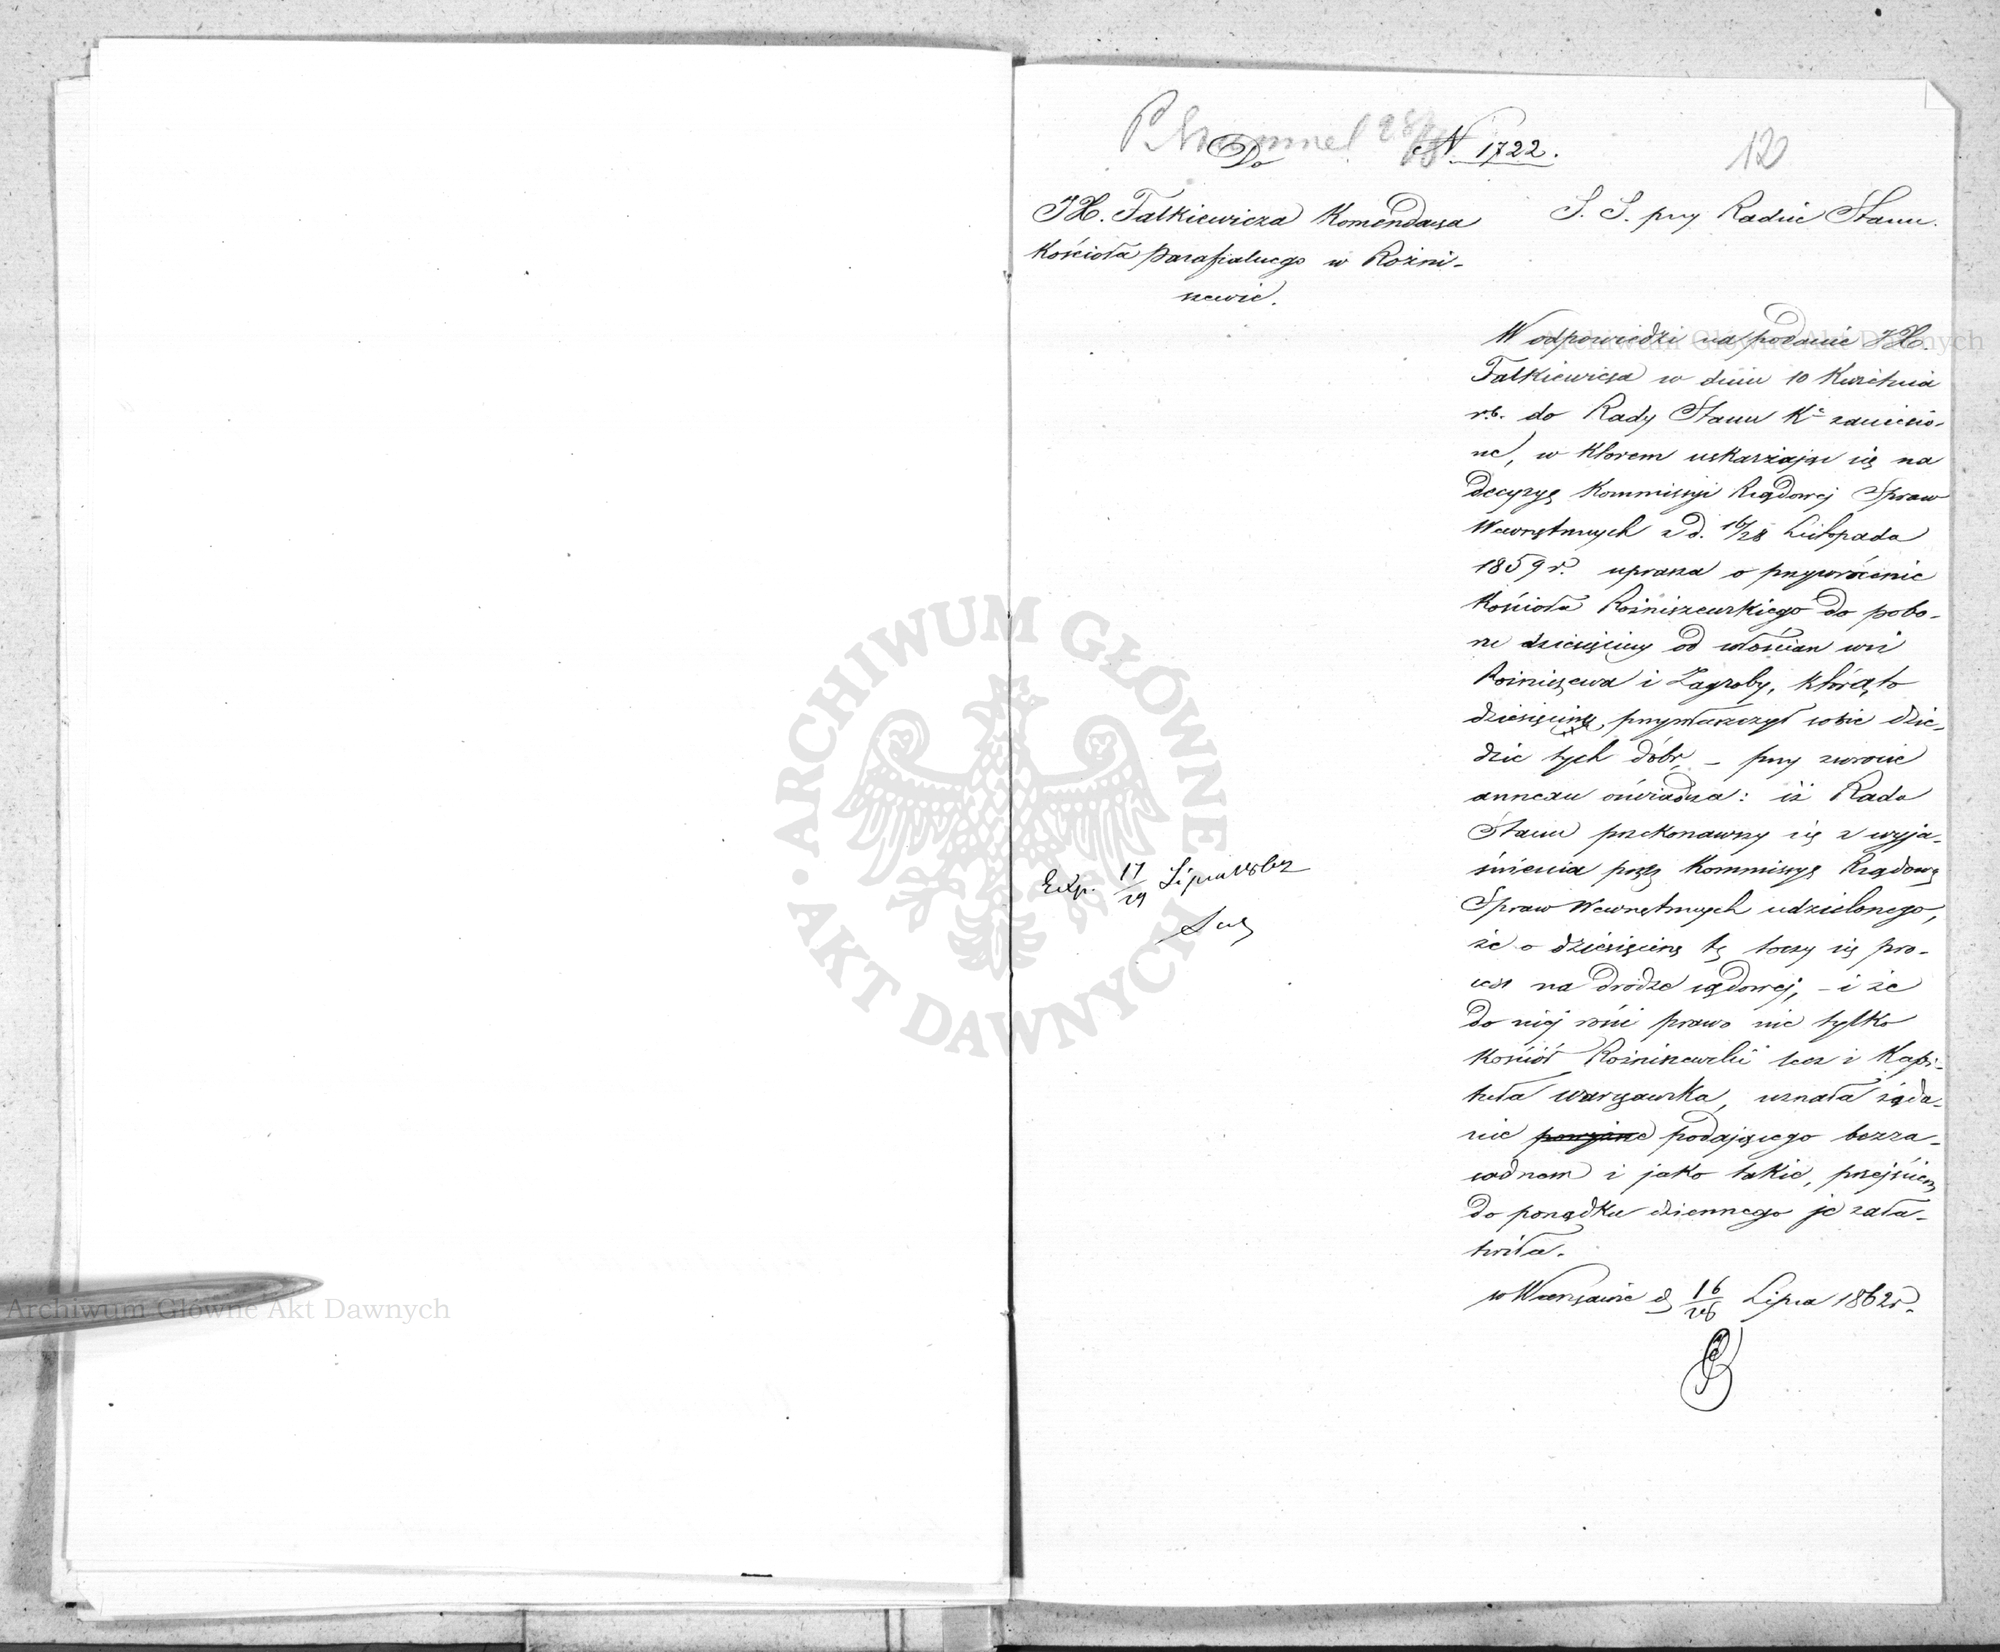 N 1722.
12
Do
JX. Falkiewicza Komendarza
Kościoła Parafialnego w Rożni-
szewie.
S. S. przy Radzie Stanu.
W odpowiedzi na podanie JX.
Falkiewicza w dniu 10 Kwietnia
r.b. do Rady Stanu Kr zaniesio-
ne, w którem uskarżając się na
decyzyę Kommissyi Rządowej Spraw
Wewnętrznych z d. 16/28 Listopada
1859 r. uprasza o przywrócenie
Kościoła Rożniszewskiego do pobo-
ru dziesięciny od włościan wsi
Rożniszewa i Zagroby, którąto
dziesięcinę przywłaszczył sobie dzie-
dzic tych dóbr, – przy zwrocie
annexu oświadcza: iż Rada
Stanu przekonawszy się z wyja-
śnienia przez Kommissyę Rządową
Spraw Wewnętrznych udzielonego,
że o dziesięcinę tę toczy się pro-
ces na drodze sądowej, – i że
do niej rości prawo nie tylko
Kościół Rożniszewski lecz i Kapi-
tuła Warszawska, uznała żąda-
nie podającego bezza-
sadnem i jako takie, przejściem
do porządku dziennego je zała-
twiła.
w Warszawie d. 16/28 Lipca 1862 r.
Exp. 17/29 Lipca 1862
ARCHIWUM GŁÓWNE
AKT DAWNYCH
Archiwum Główne Akt Dawnych
Archiwum Główne Akt Dawnych